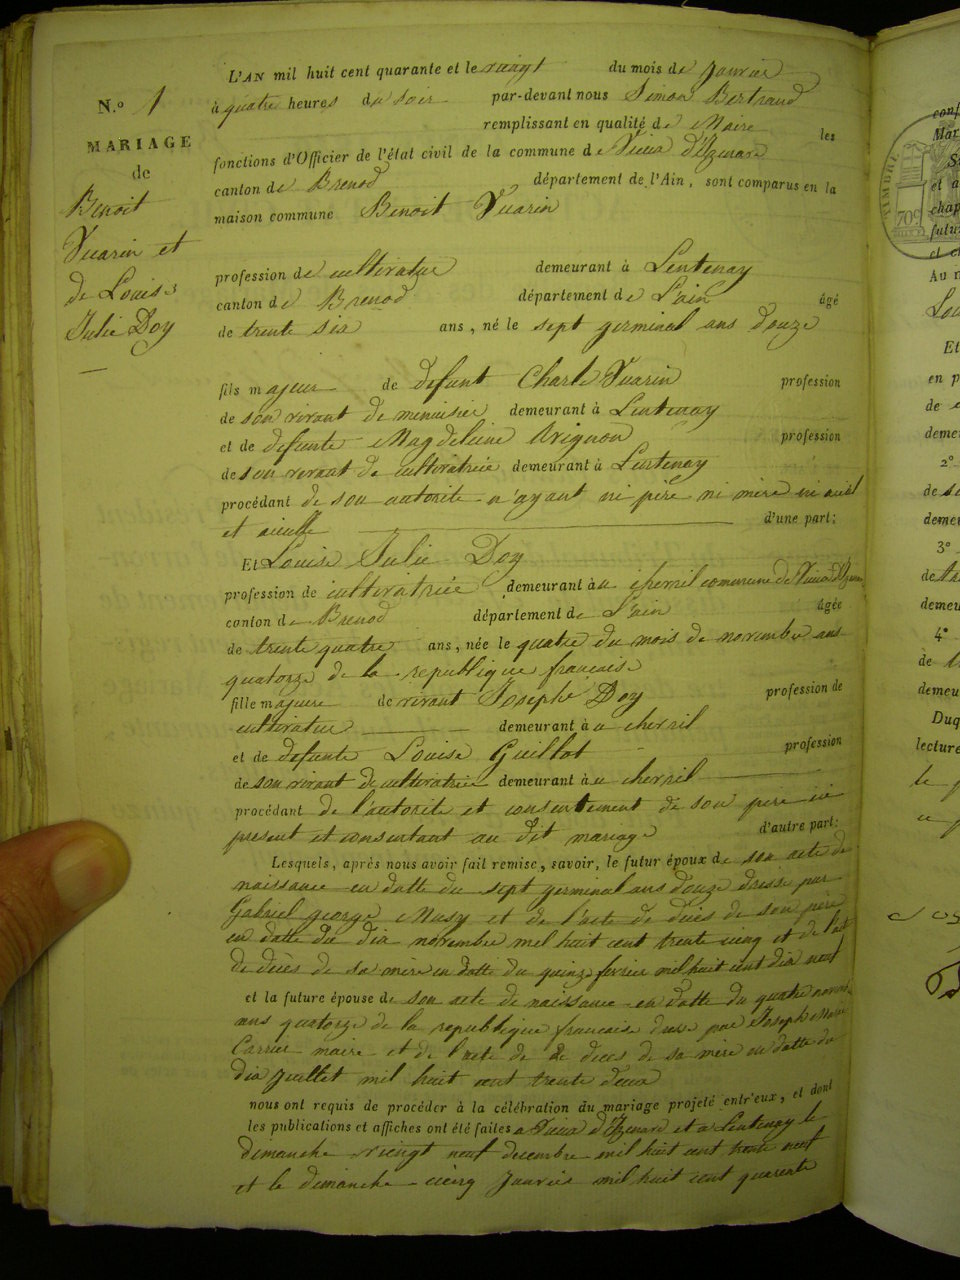 N.º 1
MARIAGE
de
Benoit
Vuarin et
de Louise
Julie Doy
L'AN mil huit cent quarante et le vingt du mois de Janvier
à quatre heures du soir par-devant nous Simon Bertraud
remplissant en qualité de Maire les
fonctions d'Officier de l'état civil de la commune de Vieux d'Izenave
canton de Brenod département de l'Ain, sont comparus en la
maison commune Benoit Vuarin
profession de cultivateur demeurant à Lentenay
canton de Brenod département de L'ain âgé
de trente six ans, né le sept germinal ans douze
fils majeur de défunt Charle Vuarin profession
de son vivant de menuisier demeurant à Lentenay
et de defunte Magdeleine Avignon profession
de son vivant de cultivatrice demeurant à Lentenay
procédant de son autorité n'ayant ni père ni mère ni aieul
et aieulle d'une part;
Et Louise Julie Doy
profession de cultivatrice demeurant à a chevril commune de Vieux d'Izenave
canton de Brenod département de L'ain âgée
de trente quatre ans, née le quatre du mois de novembre ans
quatorze de la republique francaise
fille majeure de vivant Joseph Doy profession de
cultivateur demeurant à a chevril
et de defunte Louise Guillot profession
de son vivant de cultivatrice demeurant à a chevril
procédant de l'autorite et consentement de son pere ici
present et consentant au dit mariage d'autre part:
Lesquels, après nous avoir fait remise, savoir, le futur époux de son acte de
naissance en datte du sept germinal ans douze dresse par
Gabriel george Musy et de l'acte de décès de son père
en datte du dix novembre mil huit cent trente cinq et de l'acte
de décès de sa mère en datte du quinze fevrier mil huit cent dix neuf
et la future épouse de son acte de naissance en datte du quatre
ans quatorze de la republique francaise dresse par Joseph
Carrier maire et de l'acte de de deces de sa mère en datte du
dix juillet mil huit cent trente deux
nous ont requis de procéder à la célébration du mariage projeté entr'eux, et dont
les publications et affiches ont été faites a Vieux d'Izenave et a Lentenay le
dimanche vingt neuf decembre mil huit cent trente neuf
et le dimanche cinq Janvier mil huit cent quarante
TIMBRE
70c